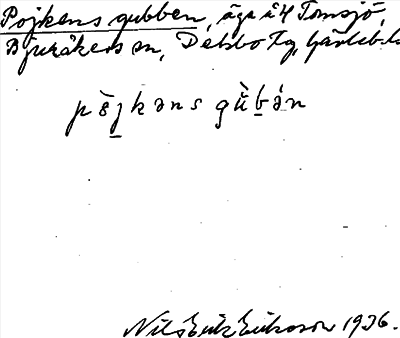 Pojkens gubben, äga å 4 Tomsjö,
Bjuråkers sn, Delsbo tg, Gävleb. l.
pòjkəns gùbə́n
Nils Erik Eriksson 1936.